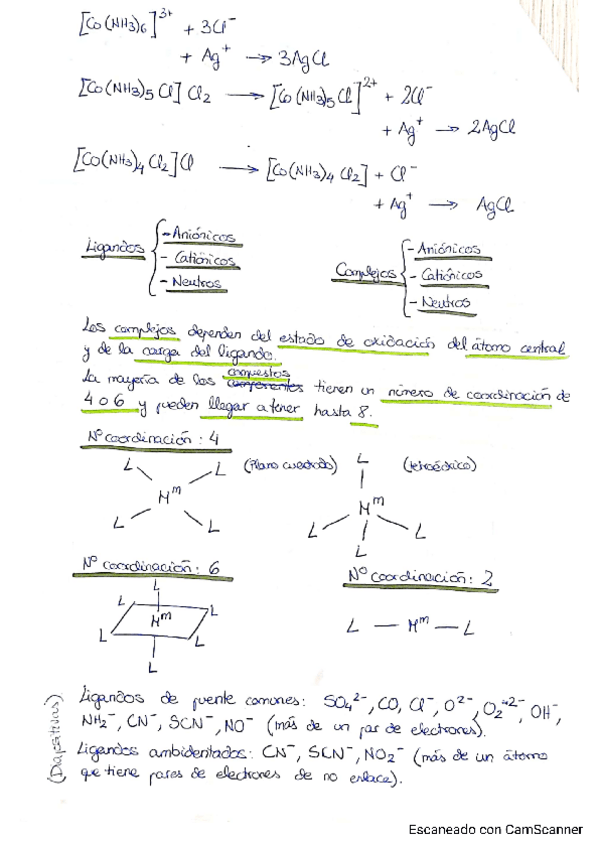 [Co(NH3)6]³⁺ + 3Cl⁻
+ Ag⁺ → 3AgCl
[Co(NH3)5 Cl] Cl2 → [Co(NH3)5 Cl]²⁺ + 2Cl⁻
+ Ag⁺ → 2AgCl
[Co(NH3)4 Cl2]Cl → [Co(NH3)4 Cl2] + Cl⁻
+ Ag⁺ → AgCl
Ligandos { - Aniónicos
- Catiónicos
- Neutros
Complejos { - Aniónicos
- Catiónicos
- Neutros
Los complejos dependen del estado de oxidación del átomo central
y de la carga del ligando.
compuestos
La mayería de los componentes tienen un número de coordinación de
4 o 6 y pueden llegar a tener hasta 8.
Nº coordinación: 4
L L (Plano cuadrado) L (tetraédrico)
Mᵐ Mᵐ
L L L L
L
Nº coordinación: 6
Nº coordinación: 2
L
L L
Mᵐ
L L
L
L — Mᵐ — L
(Diapositivas)
Ligandos de puente comunes: SO4²⁻, CO, Cl⁻, O²⁻, O2²⁻, OH⁻,
NH2⁻, CN⁻, SCN⁻, NO⁻ (más de un par de electrones).
Ligandos ambidentados: CN⁻, SCN⁻, NO2⁻ (más de un átomo
que tiene pares de electrones de no enlace).
Escaneado con CamScanner